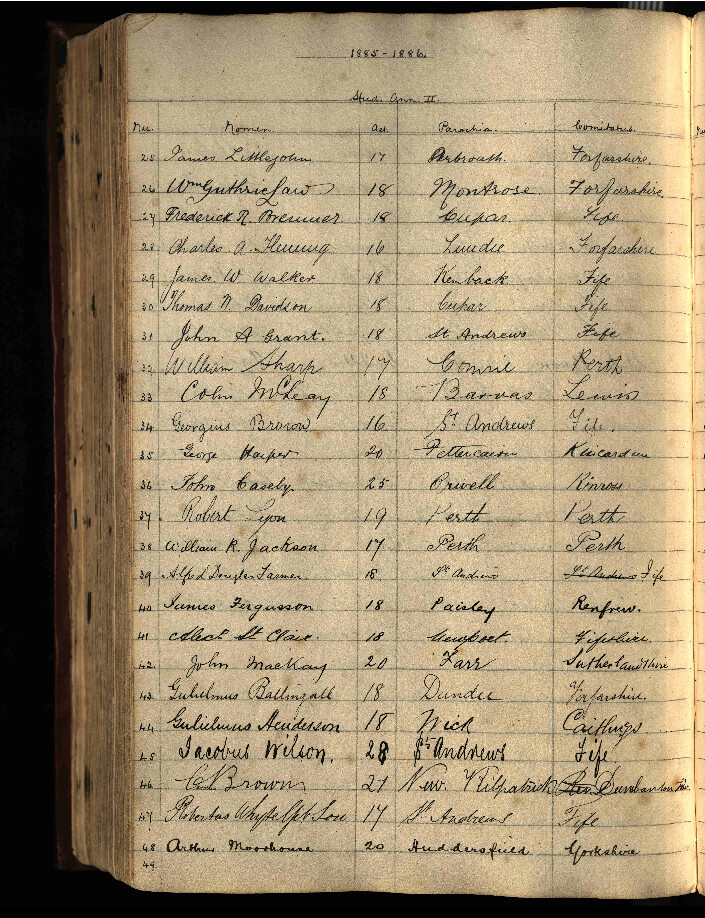 1885-1886.
Stud. Ann. II.
Nu. Nomen. Aet. Parochia. Comitatus.
25 James Littlejohn 17 Arbroath. Forfarshire.
26 Wm Guthrie Law 18 Montrose Forfarshire
27 Frederick R. Bremner 18 Cupar. Fife
28 Charles A. Fleming 16 Lundie Forfarshire
29 James W Walker 18 Kemback Fife
30 Thomas N. Davidson 18 Cupar Fife
31 John A Grant. 18 St Andrews Fife
32 William Sharp 17 Comrie Perth
33 Colin McLeay 18 Barvas Lewis
34 Georgius Brown 16 St Andrews Fife.
35 George Harper 20 Fettercairn Kincardine
36 John Caseby 25 Orwell Kinross
37 Robert Lyon 19 Perth Perth
38 William R. Jackson 17 Perth Perth
39 Alfred Douglas 18 St Andrews St Andrews Fife
40 James Fergusson 18 Paisley Renfrew.
41 Alect St Clair. 18 Newport. Fifeshire.
42 John MacKay 20 Farr Sutherlandshire
43 Gulielmus Ballingall 18 Dundee Forfarshire.
44 Gulielmus Henderson 18 Wick Caithness
45 Jacobus Wilson. 28 St Andrews Fife
46 C. Brown 21 New Kilpatrick Dumbartonshire
47 Robertus Whyte 17 St Andrews Fife
48 Arthur Moorhouse 20 Huddersfield Yorkshire
49